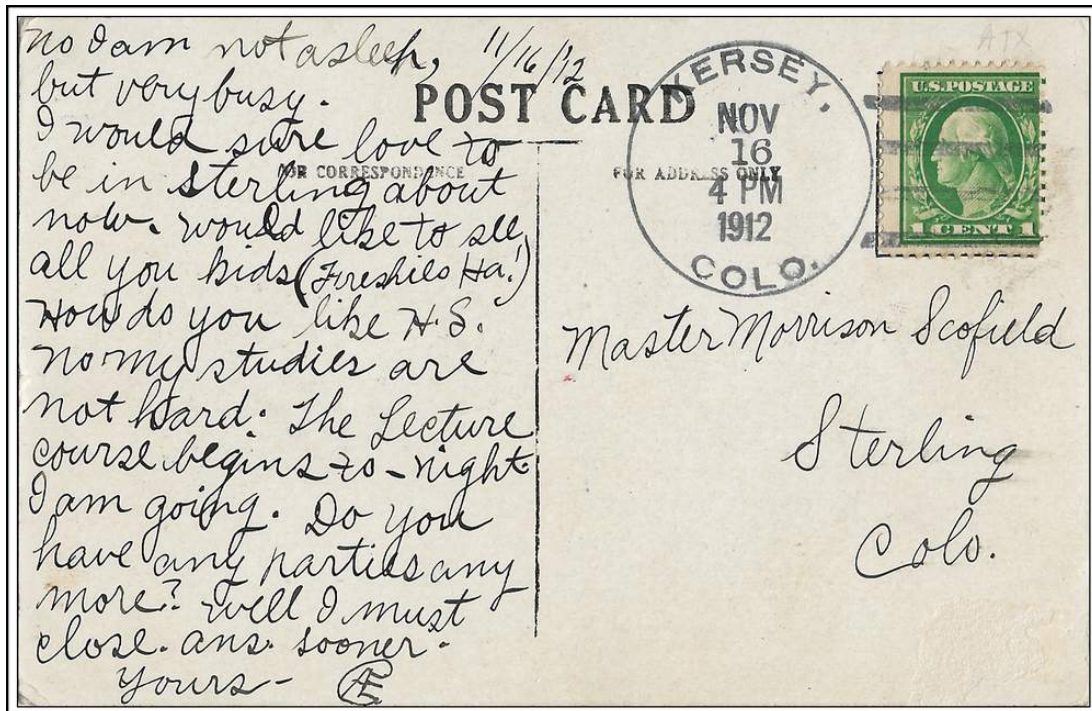 No I am not asleep, 11/16/12
but very busy.
I would sure love to
be in Sterling about
now. Would like to see
all you kids (Freshies Ha!)
How do you like H.S.
No my studies are
not hard. The Lecture
course begins to-night.
I am going. Do you
have any parties any
more? Well I must
close. ans. sooner.
Yours -
POST CARD
FOR CORRESPONDENCE
FOR ADDRESS ONLY
KERSEY,
NOV
16
4 PM
1912
COLO.
ATX
U.S. POSTAGE
1 CENT 1
Master Morrison Scofield
Sterling
Colo.